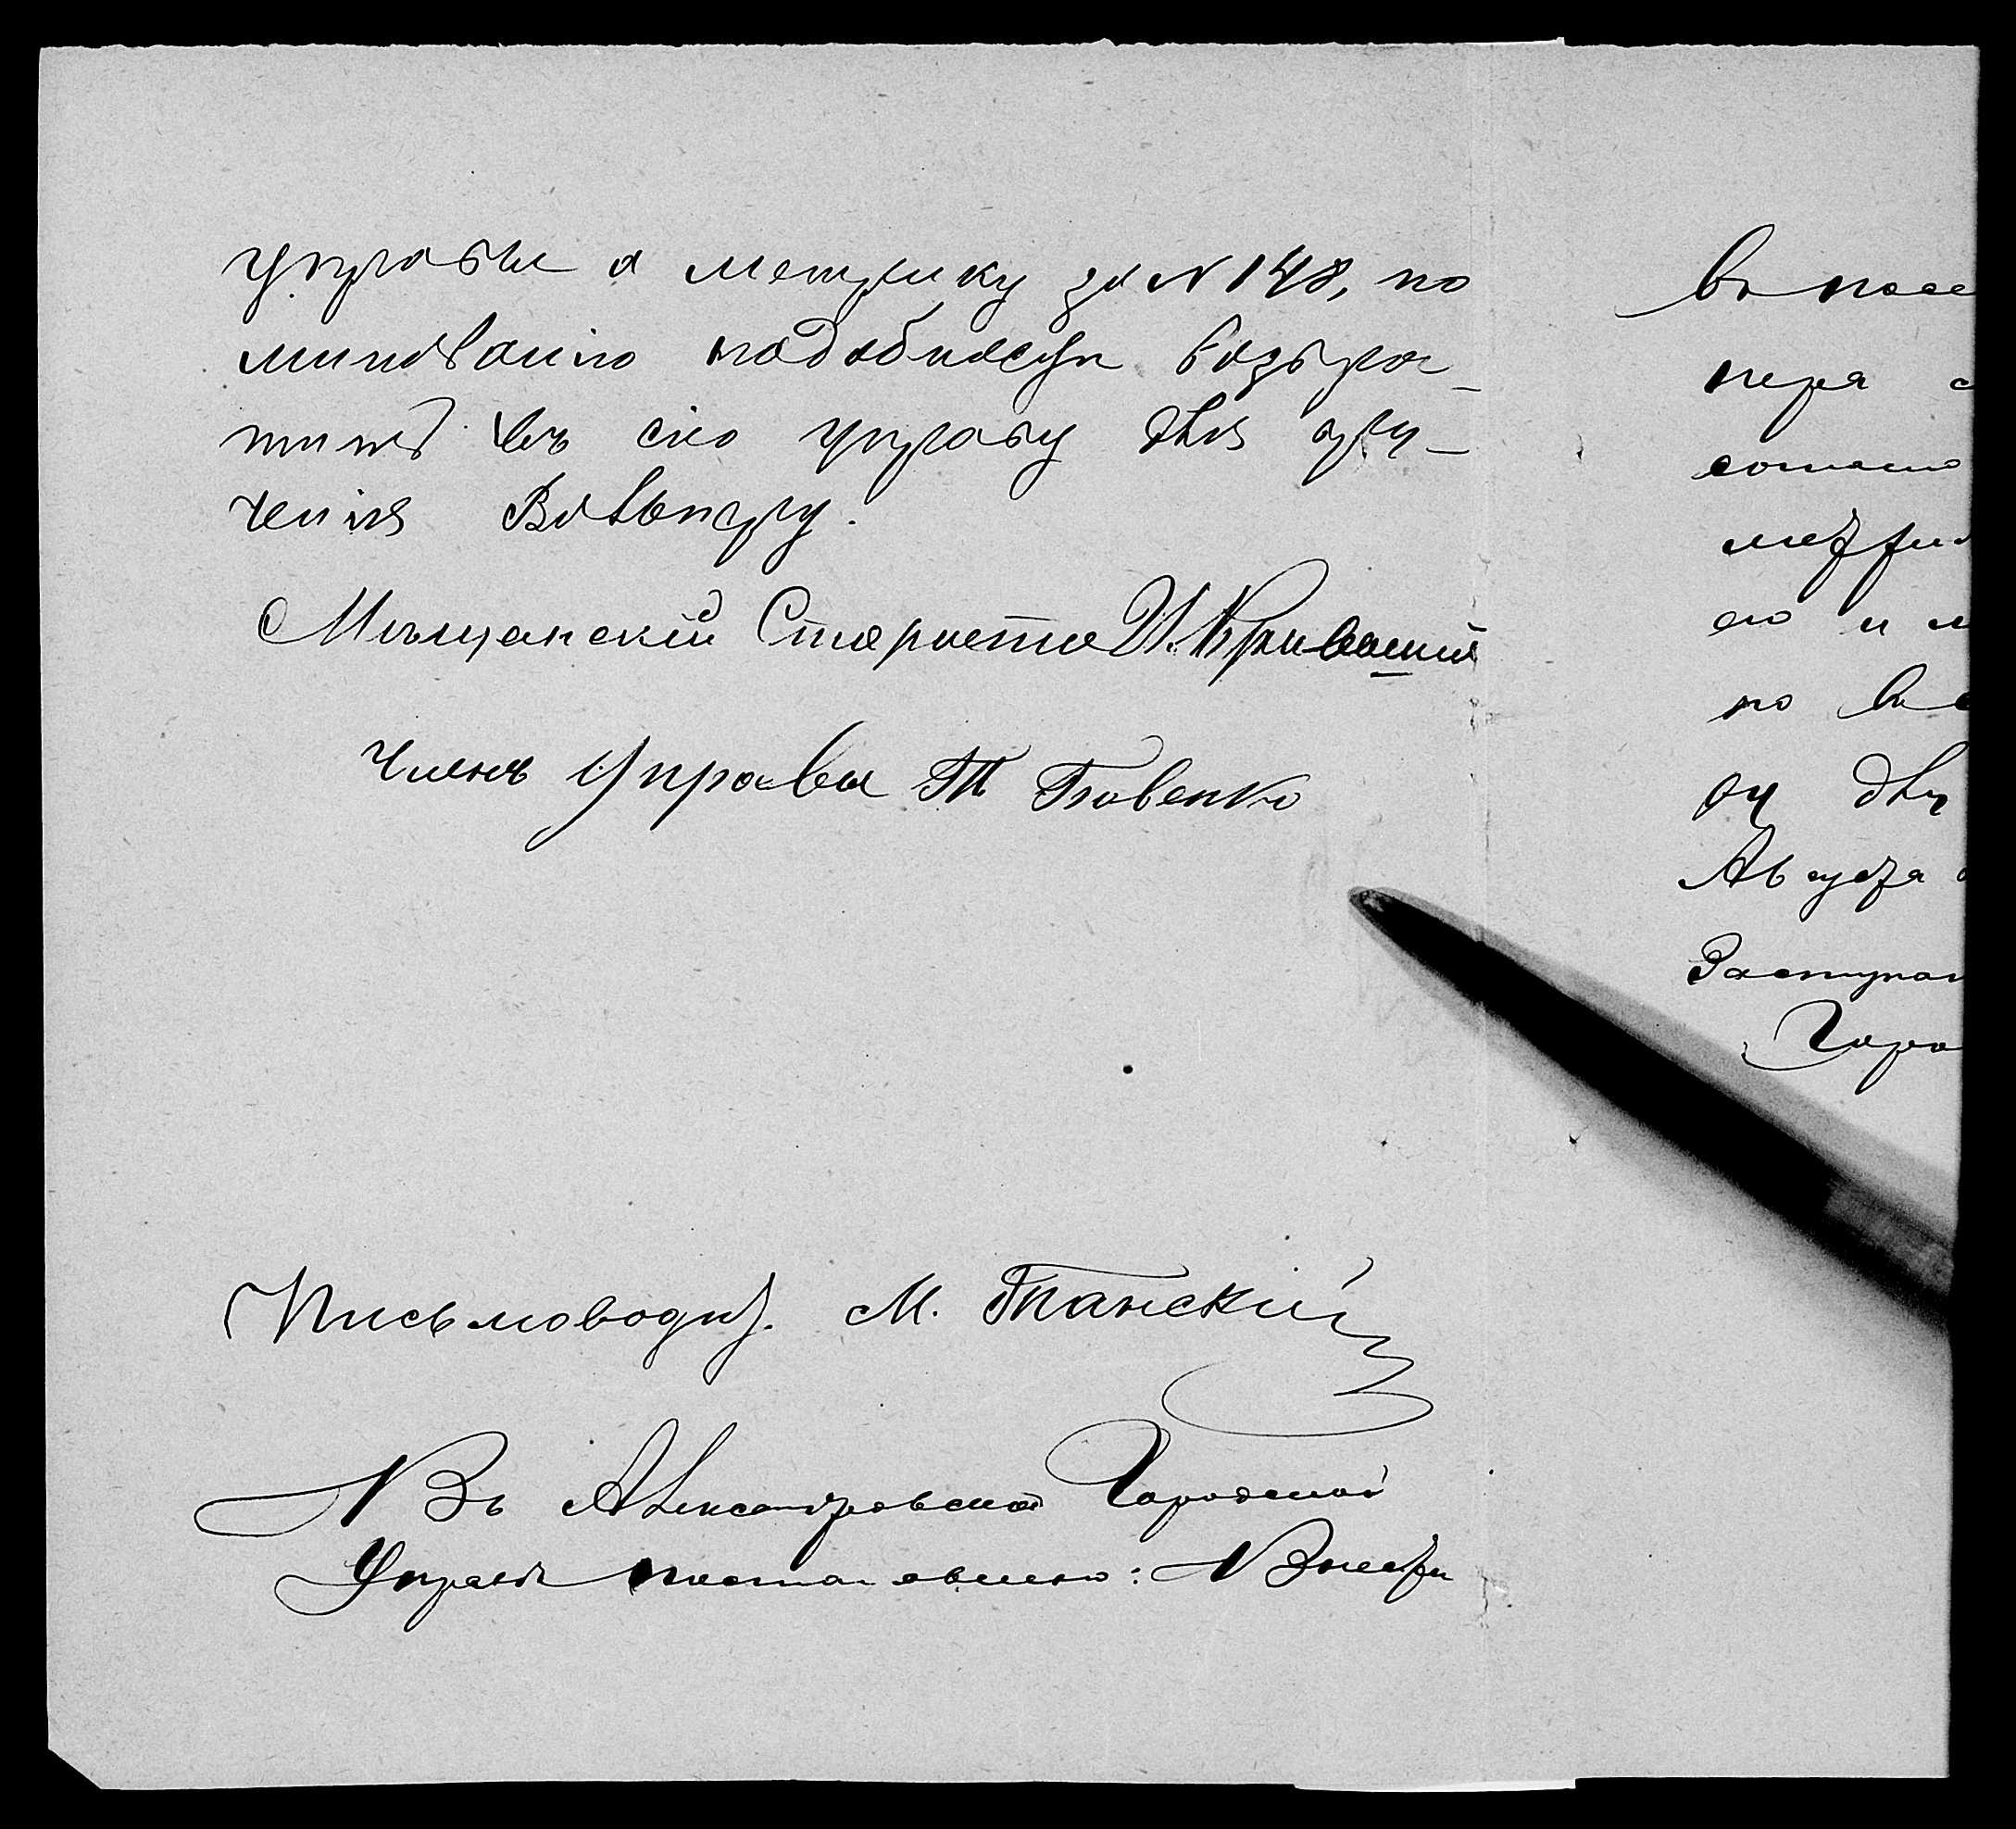 управы а метрику за N 148, по
минованію надобности возвра-
тить въ сію управу для вру-
ченія Вольнеру.
Мѣщанскій Староста И. Кривошей
Членъ Управы
Письмоводит. М. Танскій
Въ Александровской Городской
Управѣ постановлено: Внести
въ
сото
но
од
Августа
Заступаю
Горо